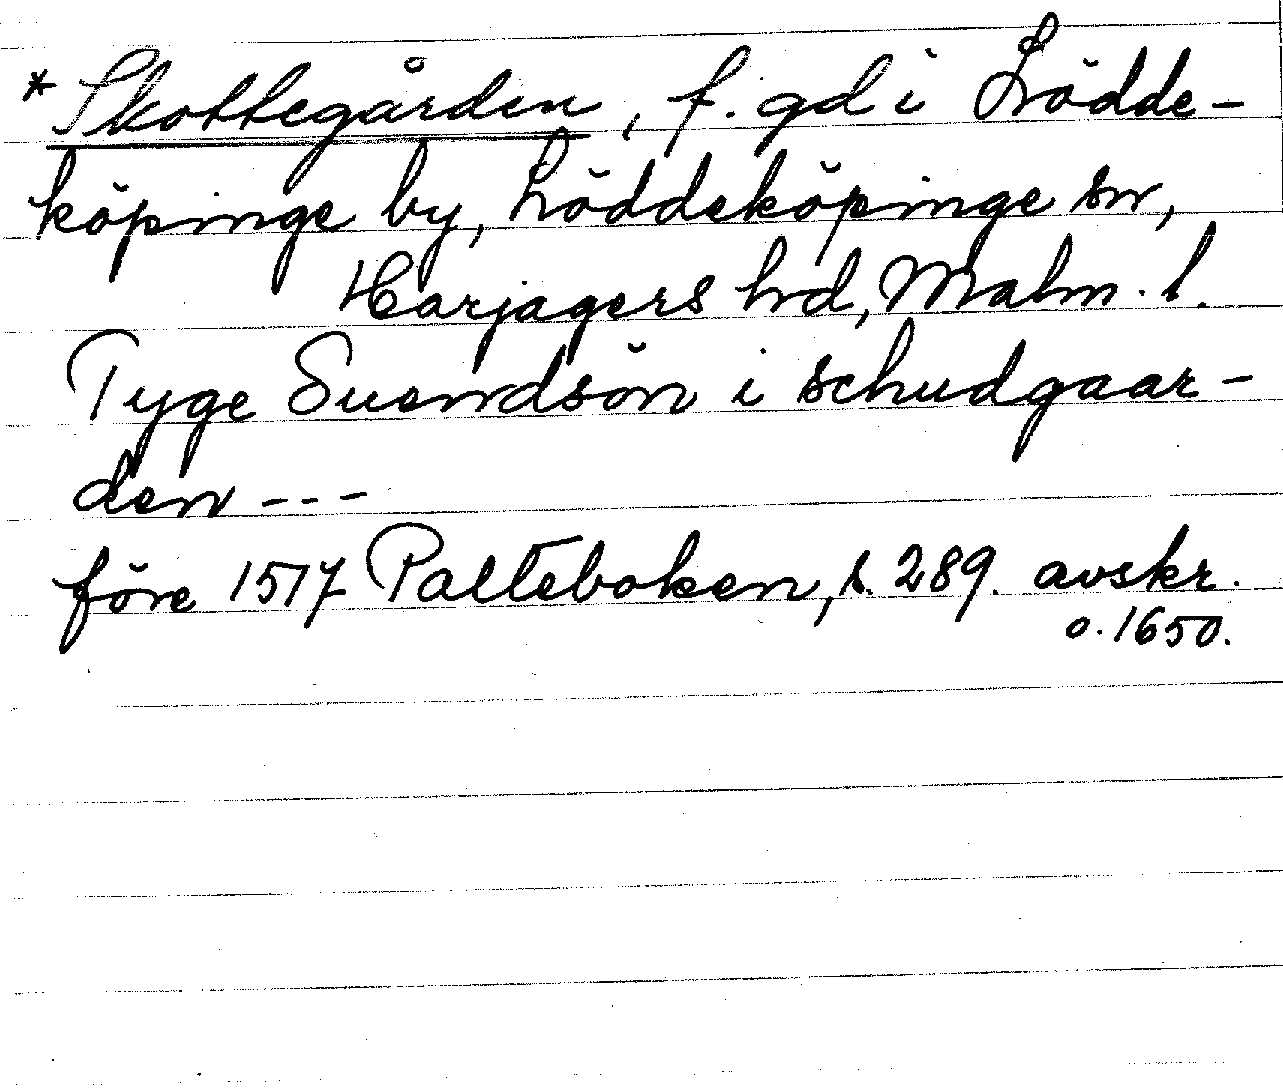 * Skottegården, f. gd i Lödde-
köpinge by, Löddeköpinge sn,
Harjagers hd, Malm. l.
Tyge Suendsön i schudgaar-
den ---
före 1517 Palteboken, s. 289. avskr.
o. 1650.